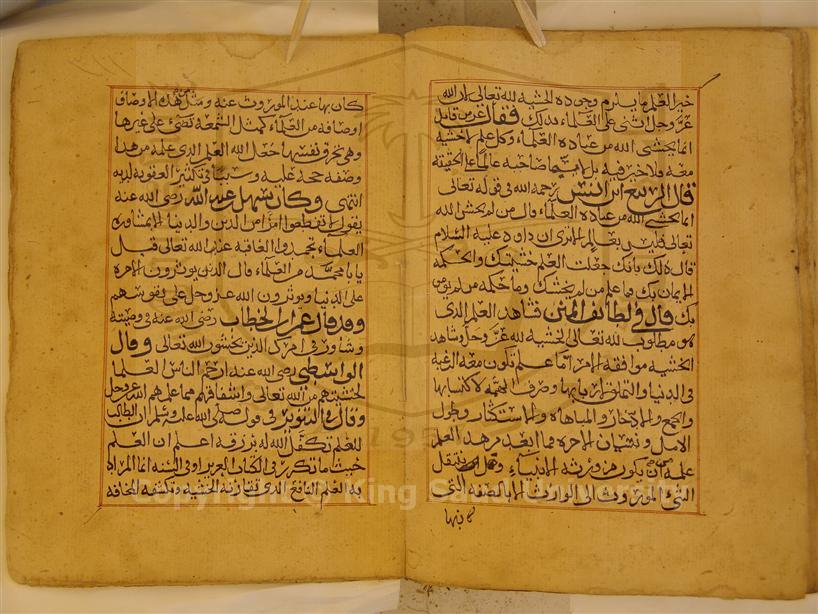 خير العلم ما يلزم وجوده الخشية لله تعالى لان الله
عز وجل اثنى على العلماء بذلك فقال عز من قائل
انما يخشى الله من عباده العلماء وكل علم لا خشية
معه فلا خير فيه بل لا يسما صاحبه عالما على الحقيقة
قال الربيع ابن انس رحمه الله في قوله تعالى
انما يخشى الله من عباده العلماء قال من لم يخش الله
تعالى فليس بعالم الا ترى ان داود عليه السلام
قال ذلك بانك جعلت العلم خشيتك والحكمة
الايمان بك فما علم من لم يخشك وما حكمة من لم يؤمن
بك قال في لطائف المنن شاهد العلم الذي
هو مطلوب لله تعالى الخشية لله عز وجل وشاهد
الخشية موافقة الامر اما علم تكون معه الرغبة
في الدنيا والتملق لاربابها وصرف الهمة لاكتسابها
والجمع والادخار والمباهاة والاستكثار وطول
الامل ونسيان الاخرة فما ابعد من هذا العلم
علمه من ان يكون من ورثة الانبياء وهل ينتقل
الشئ الموروث الى الوارث الا بالصفة التي
كان بها عند الموروث عنه ومثل من هذه الاوصاف
اوصافه من العلماء كمثل الشمعة تضئ على غيرها
وهي تحرق نفسها جعل الله العلم الذي علمه من هذا
وصفه حجة عليه وسببا في تكثير العقوبة لديه
انتهى وكان سهل بن عبد الله رضي الله عنه
يقول لا تقطعوا امرا من امر الدين والدنيا الا بمشاورة
العلماء تحمدوا العاقبة عند الله تعالى قيل
يا با محمد من العلماء قال الذين يوثرون الاخرة
على الدنيا ويوثرون الله عز وجل على نفوسهم
وقد قال عمر ابن الخطاب رضي الله عنه في وصيته
وشاور في امرك الذين يخشون الله تعالى وقال
الواسطي رضي الله عنه ارحم الناس العلما
لخشيتهم من الله تعالى واشفاقهم مما علمهم الله عز وجل
وقال في التنوير في قوله صلى الله عليه وسلم ان الطالب
للعلم تكفل الله له برزقه اعلم ان العلم
حيث ما تكرر في الكتاب العزيز او في السنة انما المراد
به العلم النافع الذي تقارنه الخشية وتكتنفه المخافة
Copyright © King Saud University